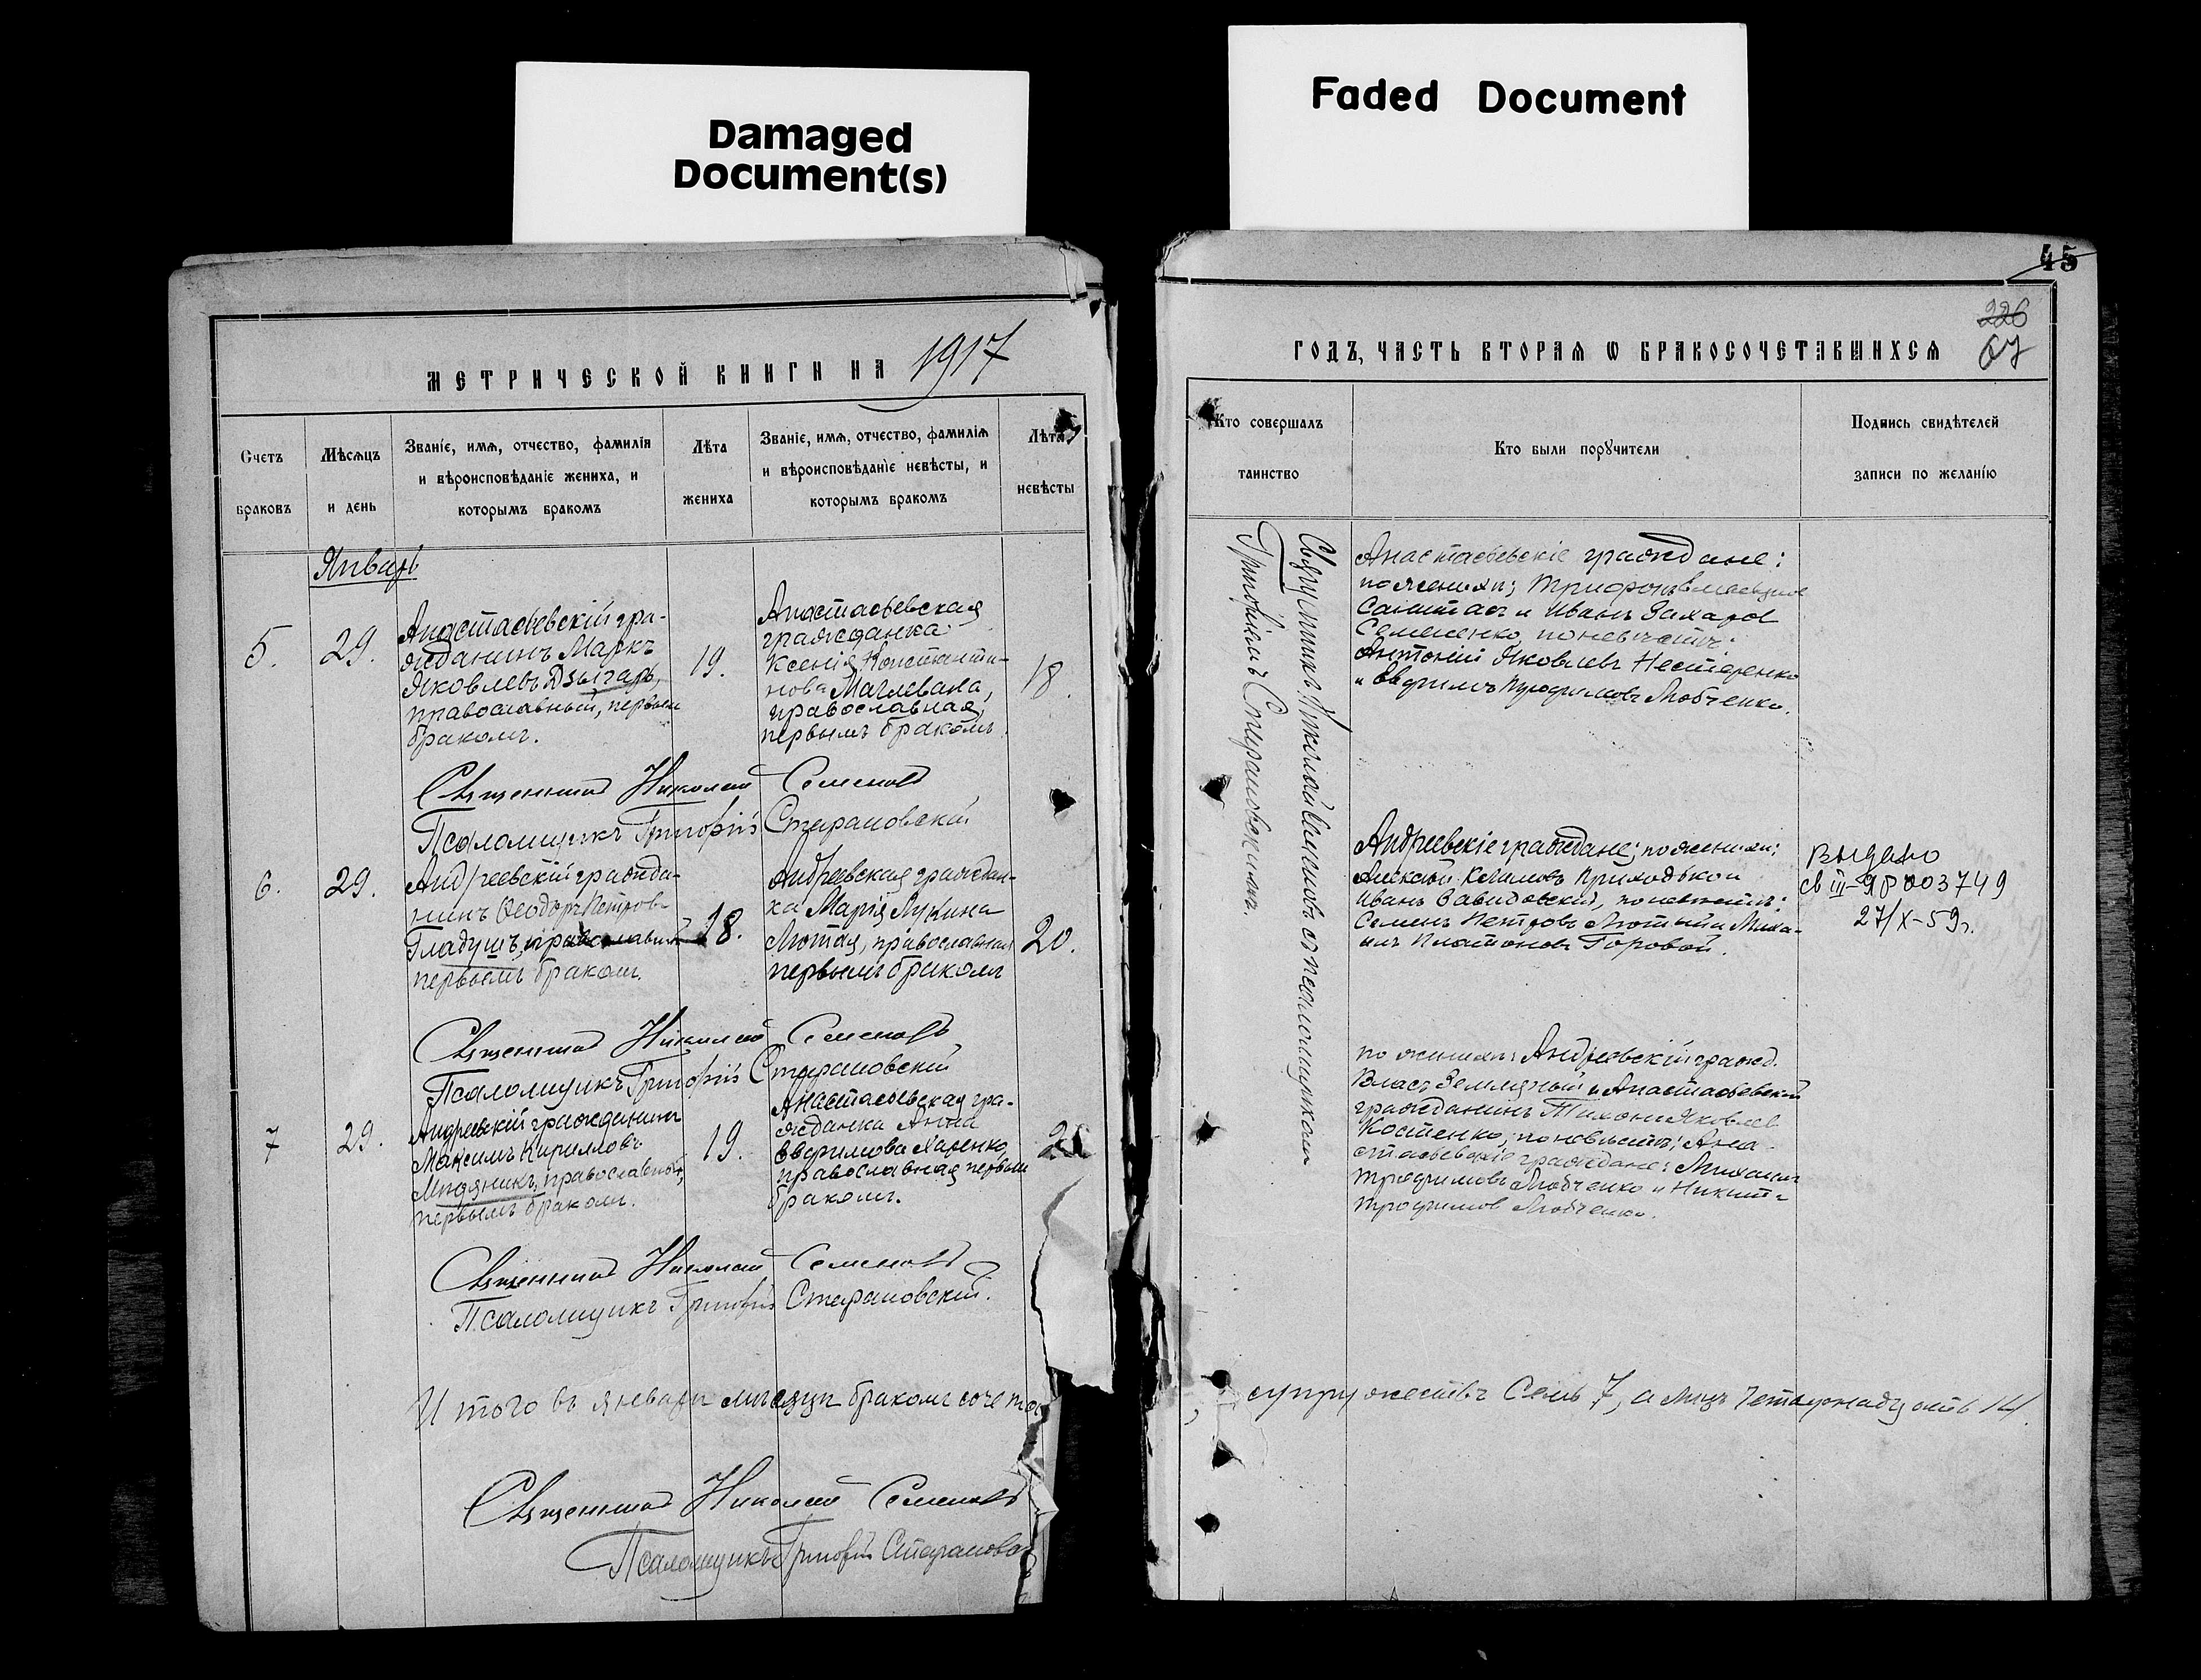 Damaged
Document(s)
Faded Document
МЕТРИЧЕСКОЙ КНИГИ НА 1917
Счетъ
браковъ
Мѣсяцъ
и день
Званіе, имя, отчество, фамилія
и вѣроисповѣданіе жениха, и
которымъ бракомъ
Лѣта
жениха
Званіе, имя, отчество, фамилія
и вѣроисповѣданіе невѣсты, и
которымъ бракомъ
Лѣта
невѣсты
Январь
5.
29.
Анастасьевскій гра-
жданинъ Маркъ
Яковлевъ Дзыгарь,
православный, первымъ
бракомъ.
19.
Анастасьевская
гражданка
Ксенія Константи-
нова
православная,
первымъ бракомъ.
18.
Священникъ Николай Семеновъ
Псаломщикъ Григорій
6.
29.
Андреевскій гражда-
нинъ Ѳеодоръ Петровъ
Гладушъ, православный
первымъ бракомъ.
18.
Андреевская граждан-
ка Марія Лукина
Лютая, православная
первымъ бракомъ
20.
Священникъ Николай Семеновъ
Псаломщикъ Григорій
7
29.
Андреевскій гражданинъ
Максимъ Кирилловъ
православный,
первымъ бракомъ.
19.
Анастасьевская гра-
жданка Анна
Евфимова
православная первымъ
бракомъ.
Священникъ Николай Семеновъ
Псаломщикъ Григорій
Итого въ январѣ мѣсяцѣ бракомъ сочета
Священникъ Николай Семеновъ
Псаломщикъ Григорій
45
226
67
ГОДЪ, ЧАСТЬ ВТОРАЯ Ѡ БРАКОСОЧЕТАВШИХСЯ
Кто совершалъ
таинство
Кто были поручители
Подпись свидѣтелей
записи по желанію
Священникъ Николай Семеновъ съ псаломщикомъ
Григоріемъ
Анастасьевскіе граждане:
по женихѣ; Трифонъ
и Иванъ Захаровъ
Семененко, по невѣстѣ:
Антоній Яковлевъ Нестеренко
и Евфимъ Трофимовъ Любченко.
Андреевскіе граждане; по женихѣ:
Алексѣй Климовъ Приходько и
Иванъ Савидовскій, по невѣстѣ:
Семенъ Петровъ Лютый и Миха-
илъ Платоновъ Горовой.
Выдано
св III-ЯР 003749
27/X-59г.
по женихѣ: Андреевскій гражд.
Власъ Земляный и Анастасьевскій
гражданинъ Тихонъ Яковлев
Костенко, по невѣстѣ: Ана-
стасьевскіе граждане: Михаилъ
Трофимовъ Любченко и Никита
Трофимов Любченко.
супружествъ Семь 7, а лицъ четырнадцать 14.